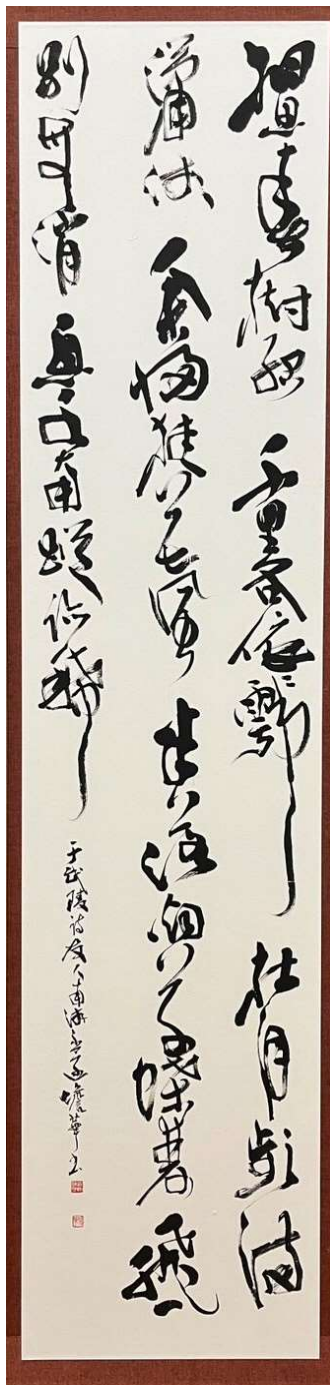 相思春樹綠千里各依依鄠杜月頻滿
瀟湘人不歸桂花風半落烟草蝶雙飛一
別無消息水南車跡稀
于武陵詩友人南游